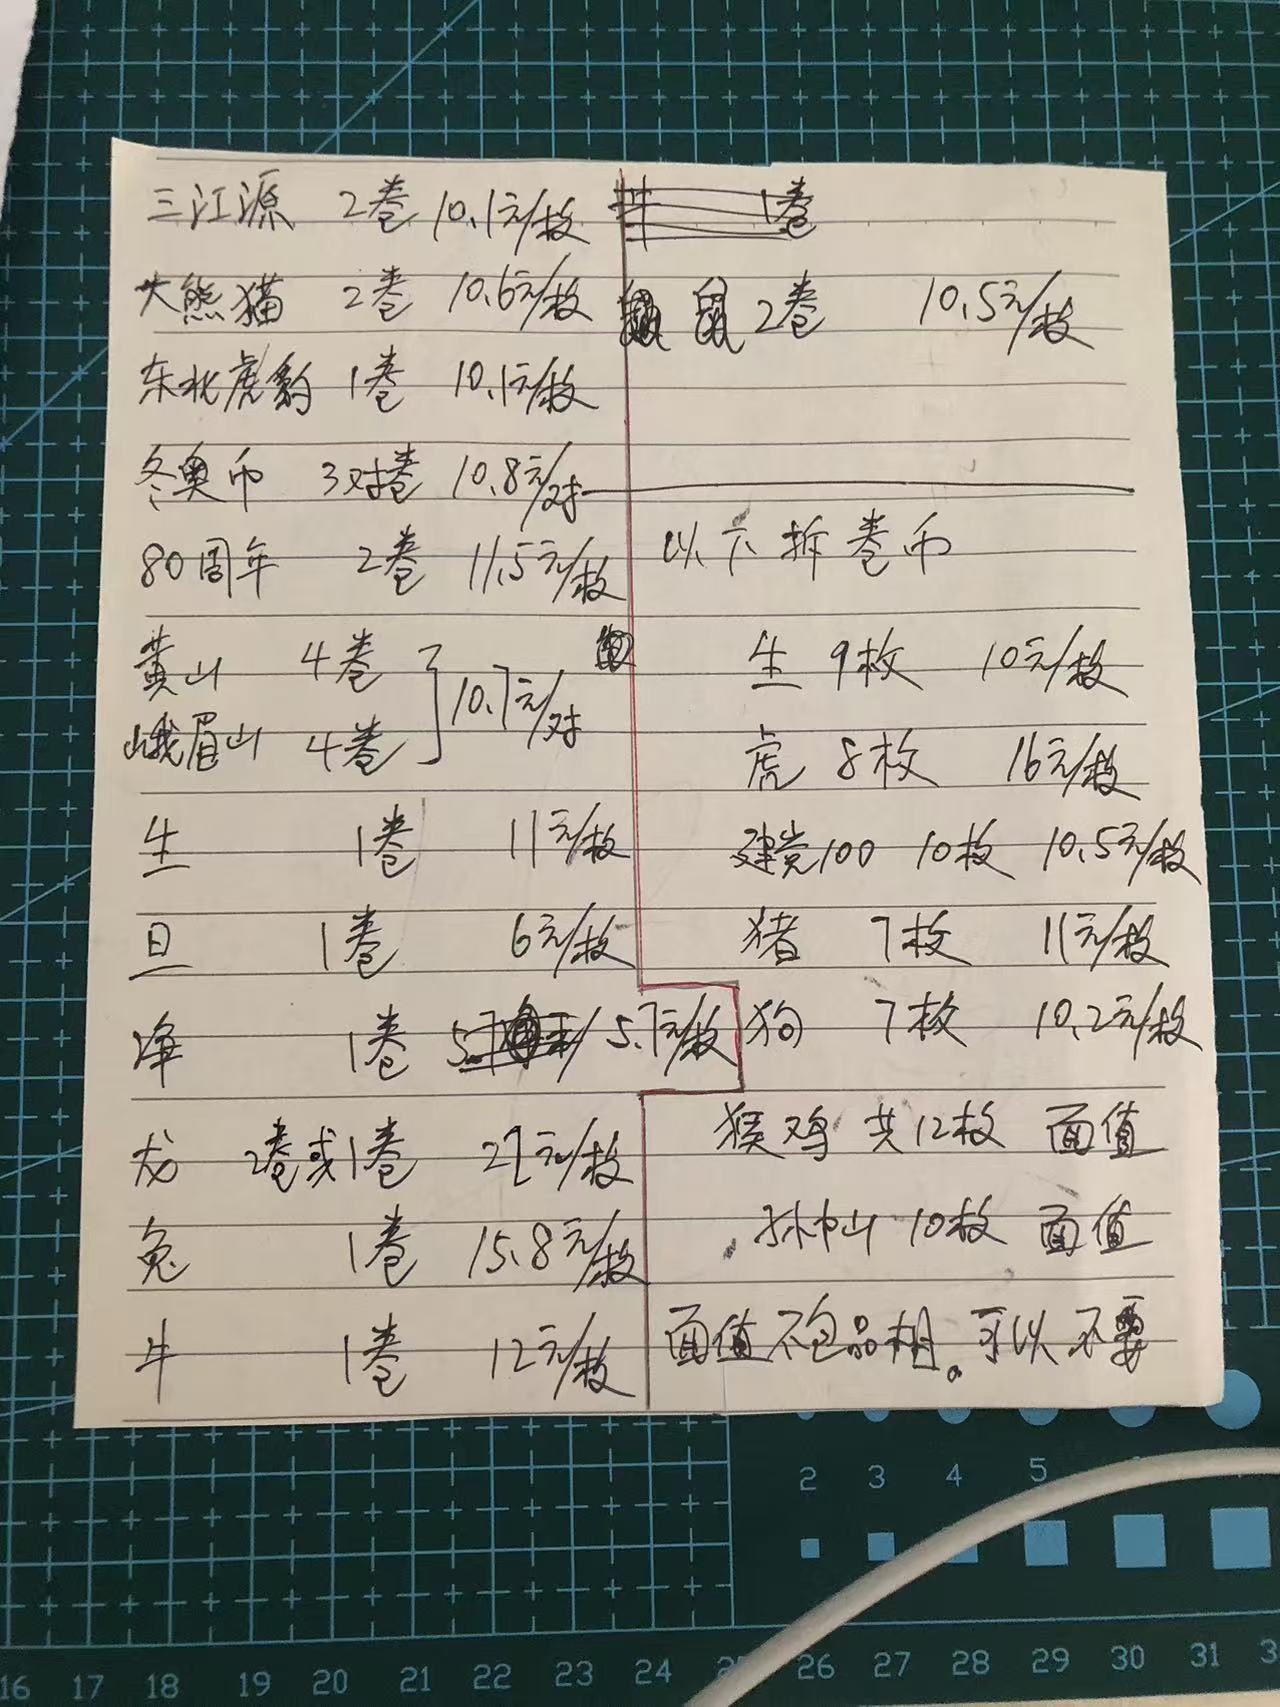 三江源 2卷 10.1元/枚
大熊猫 2卷 10.6元/枚
东北虎豹 1卷 10.1元/枚
冬奥币 3对卷 10.8元/对
80周年 2卷 11.5元/枚
黄山 4卷
峨眉山 4卷
10.7元/对
生 1卷 11元/枚
旦 1卷 6元/枚
净 1卷 5.7元/枚
龙 2卷或1卷 元/枚
兔 1卷 15.8元/枚
牛 1卷 12元/枚
1卷
鼠 2卷 10.5元/枚
以下拆卷币
生 9枚 10元/枚
虎 8枚 16元/枚
建党100 10枚 10.5元/枚
猪 7枚 11元/枚
狗 7枚 10.2元/枚
猴鸡 共12枚 面值
孙中山 10枚 面值
面值不包品相。可以不要
2 3 4 5
16 17 18 19 20 21 22 23 24 25 26 27 28 29 30 31